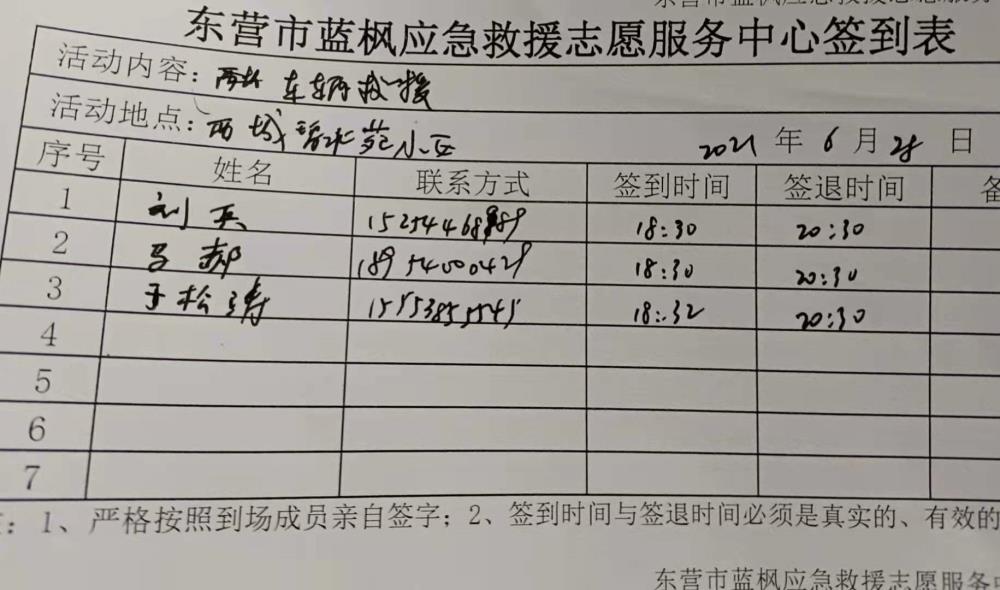 东营市蓝枫应急救援志愿服务中心签到表
活动内容: 车辆救援
活动地点: 西城 苑小区 2021 年 6 月 28 日
序号 姓名 联系方式 签到时间 签退时间 备
1 刘兵 18:30 20:30
2 18954000429 18:30 20:30
3 于松涛 18:32 20:30
4
5
6
7
:1、严格按照到场成员亲自签字;2、签到时间与签退时间必须是真实的、有效的
东营市蓝枫应急救援志愿服务中